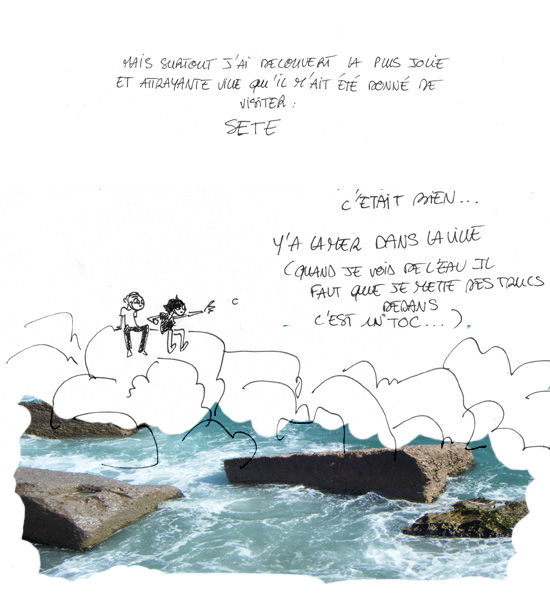 MAIS SURTOUT J'AI DECOUVERT LA PLUS JOLIE
ET ATTRAYANTE VILLE QU'IL M'AIT ÉTÉ DONNÉ DE
VISITER :
SETE
C'ETAIT BIEN...
Y'A LA MER DANS LA VILLE
(QUAND JE VOIS DE L'EAU IL
FAUT QUE JE METTE DES TRUCS
DEDANS
C'EST UN TOC...)